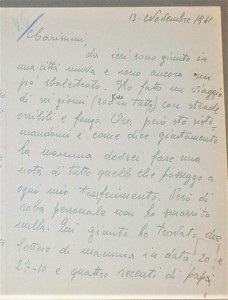 13 Novembre 1941
Carissimi,
da ieri sono giunto in
una città nuova e sono ancora un
po' sbalestrato. Ho fatto un viaggio
di sei giorni ( in tutto) con strade
orribili e fango. Ora però sto siste-
mandomi e come dice giustamente
la mamma dovrei fare una
nota di tutto quello che posseggo a
ogni mio trasferimento. Però di
roba personale non ho smarrito
nulla. Qui giunto ho trovato due
lettere di mamma in data 20 e
27-10 e quattro recenti di papà